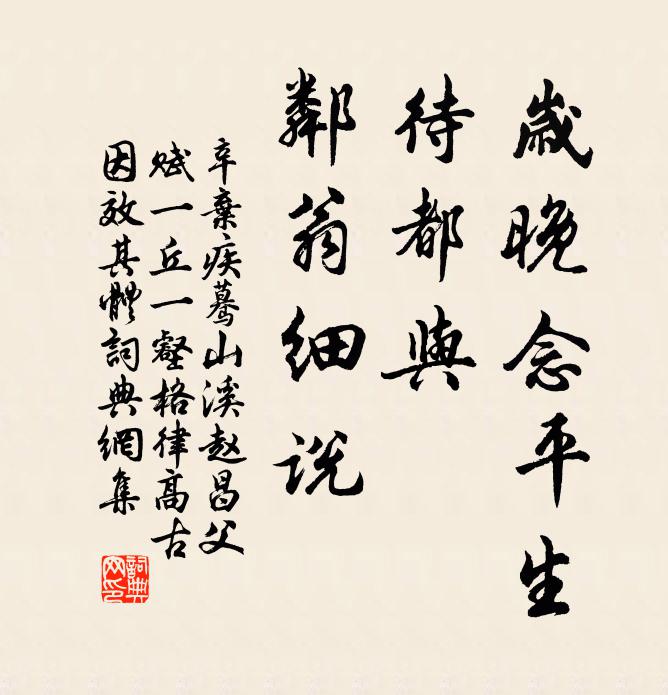 歲晚念平生
待都與
鄰翁細說
辛棄疾驀山溪趙昌父
賦一丘一壑格律高古
因效其體詞典網集
詞典
网印